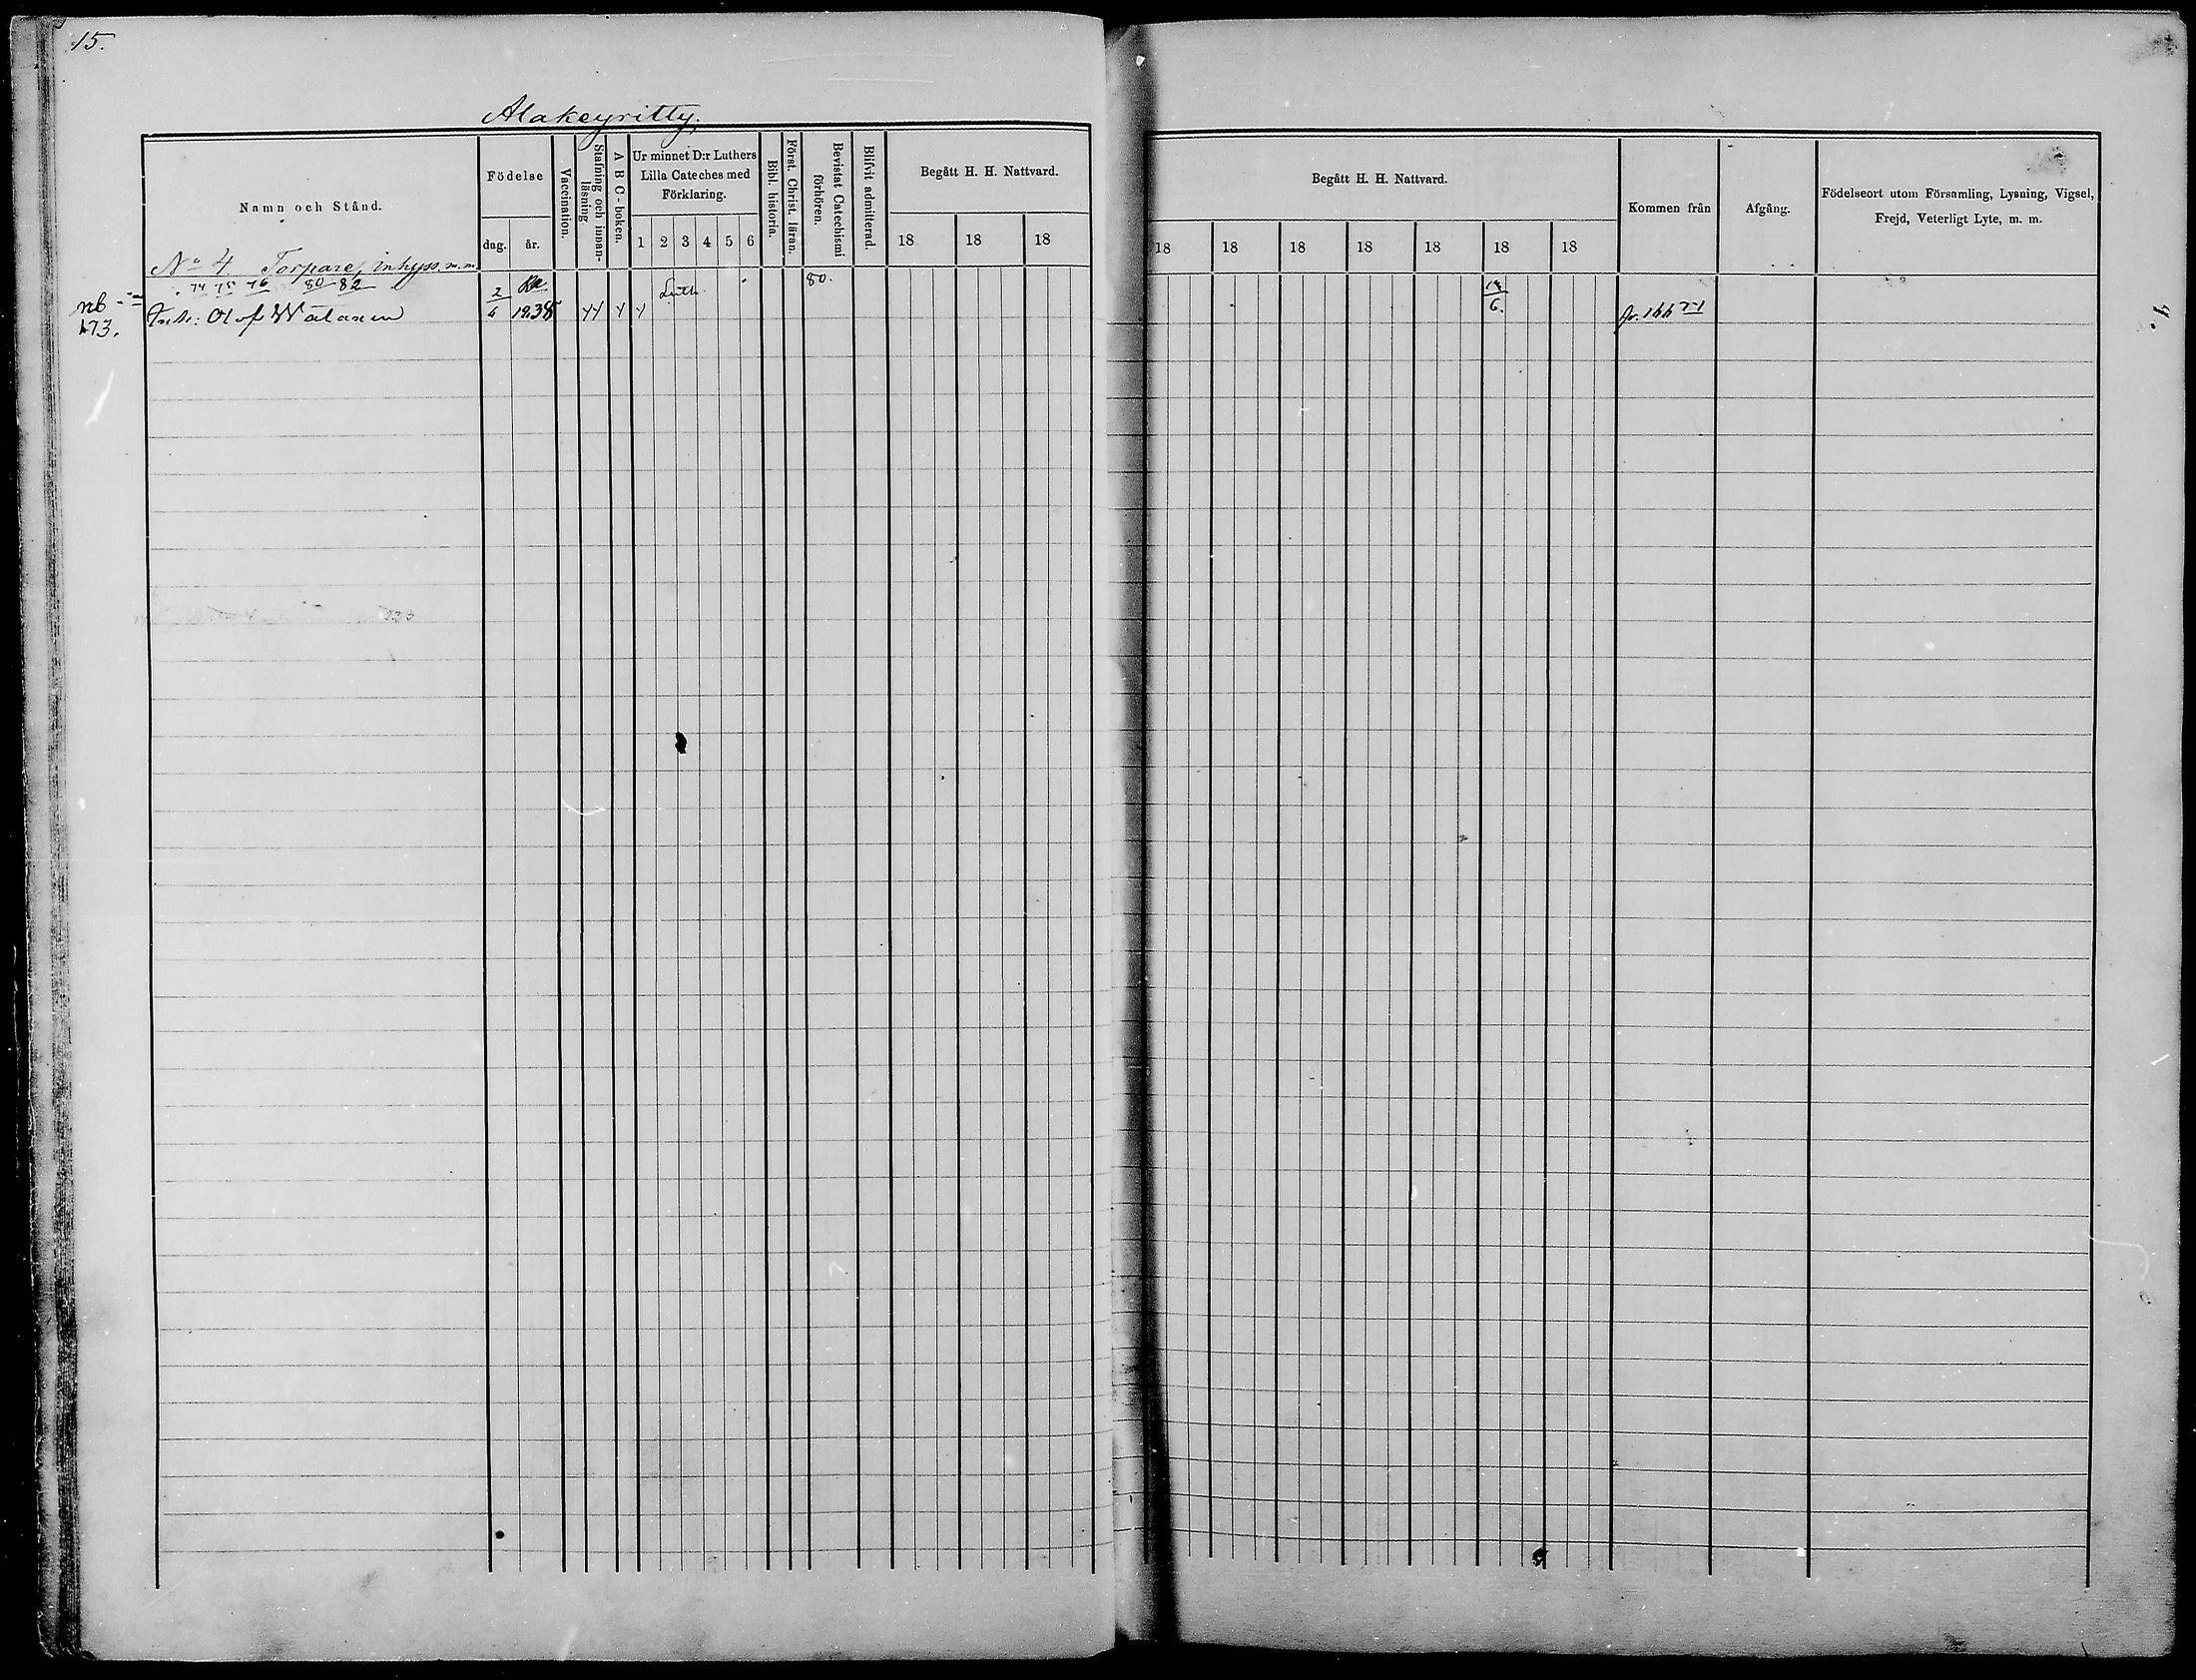 15.
Alakeyritty.
Namn och Stånd.
Födelse
dag.
år.
Vaccination.
Stafning och innan-
läsning
A B C - boken.
Ur minnet D:r Luthers
Lilla Cateches med
Förklaring.
1 2 3 4 5 6
Bibl. historia.
Först. Christ. läran.
Bevistat Catechismi
förhören.
Blifvit admitterad.
Begått H. H. Nattvard.
18 18 18
Begått H. H. Nattvard.
18 18 18 18 18 18 18
Kommen från
Afgång.
Födelseort utom Församling, Lysning, Vigsel,
Frejd, Veterligt Lyte, m. m.
No 4. Torpare, inhyss m.m.
74 75 76 80 82
Luth.
80.
Olof Watanen
2
6.